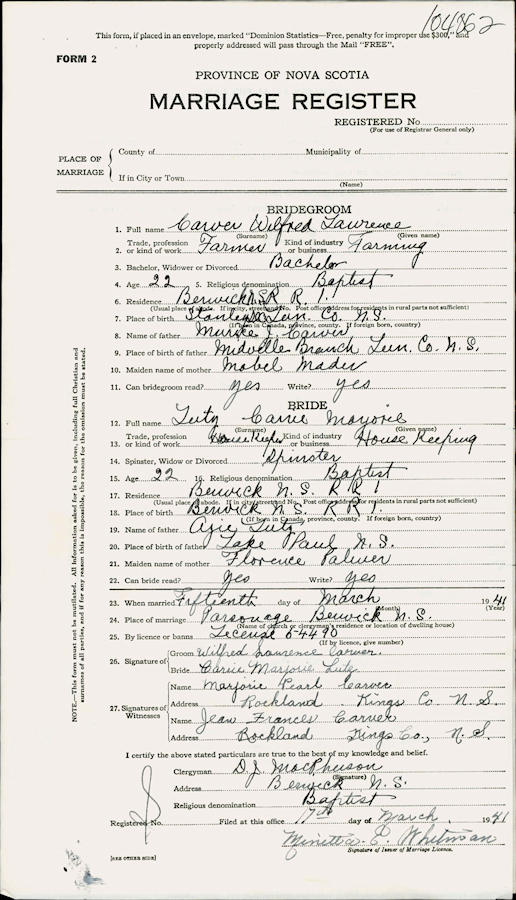 104862
This form, if placed in an envelope, marked "Dominion Statistics—Free, penalty for improper use $300," and
properly addressed will pass through the Mail "FREE".
FORM 2
PROVINCE OF NOVA SCOTIA
MARRIAGE REGISTER
REGISTERED No.
(For use of Registrar General only)
PLACE OF MARRIAGE
County of Municipality of
If in City or Town
(Name)
BRIDEGROOM
1. Full name Carver Wilfred Lawrence
(Surname) (Given name)
2. Trade, profession or kind of work Farmer Kind of industry or business Farming
3. Bachelor, Widower or Divorced Bachelor
4. Age 22 5. Religious denomination Baptist
6. Residence Berwick N.S. R R 1.
(Usual place of abode. If in city, street and No. Post office address for residents in rural parts not sufficient)
7. Place of birth Lun. Co. N.S.
(If born in Canada, province, county. If foreign born, country)
8. Name of father J. Carver
9. Place of father Midville Branch Lun. Co. N.S.
10. Maiden name of mother Mabel Mader
11. Can bridegroom read? yes Write? yes
BRIDE
12. Full name Lutz Carrie Marjorie
(Surname) (Given name)
13. Trade, profession or kind of work House Keeper Kind of industry or business House Keeping
14. Spinster, Widow or Divorced Spinster
15. Age 22 16. Religious denomination Baptist
17. Residence Berwick N.S. R R 1
(Usual place of abode. If in city street and No. Post office address for residents in rural parts not sufficient)
18. Place of birth Berwick N.S. R R 1.
(If born in Canada, province, county. If foreign born, country)
19. Name of father Lutz
20. Place of birth of father Lake Paul N.S.
21. Maiden name of mother Florence Palmer
22. Can bride read? Yes Write? Yes
23. When married Fifteenth day of March 1941
(Month) (Year)
24. Place of marriage Parsonage Berwick N.S.
(Name of church or clergyman's residence or location of dwelling house)
25. By licence or banns License 54490
(If by licence, give number)
26. Signature of
Groom Wilfred Lawrence Carver.
Bride Carrie Marjorie Lutz
27. Signatures of Witnesses
Name Marjorie Pearl Carver
Address Rockland Kings Co N.S.
Name Jean Frances Carver
Address Rockland Kings Co., N.S.
I certify the above stated particulars are true to the best of my knowledge and belief.
Clergyman D.J. MacPherson
(Signature)
Address Berwick N.S.
Religious denomination Baptist
Registered No. Filed at this office 17th day of March, 1941
Whitman
Signature of Issuer of Marriage Licence.
[SEE OTHER SIDE]
NOTE.—This form must not be mutilated. All information asked for is to be given, including full Christian and
surnames of all parties, and if for any reason this is impossible, the reason for the omission must be stated.